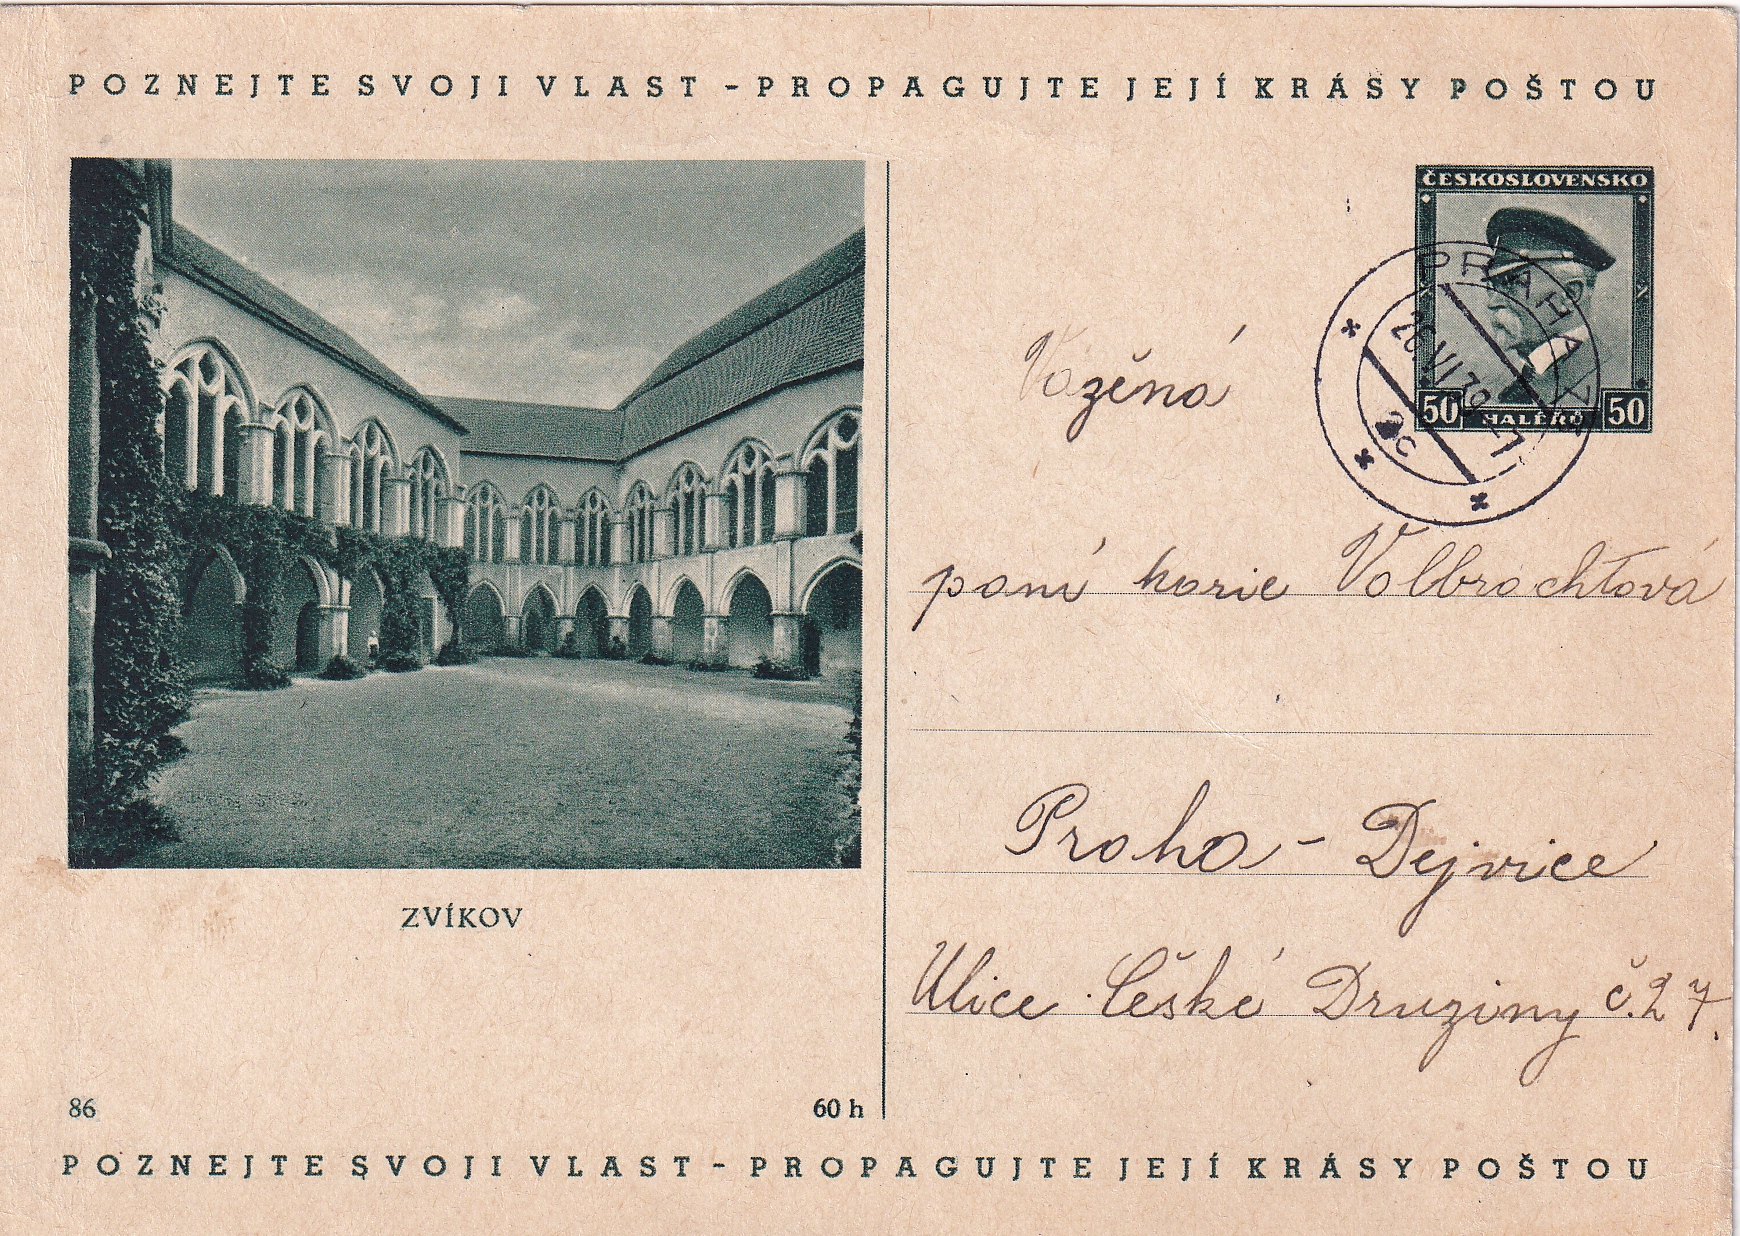 POZNEJTE SVOJI VLAST - PROPAGUJTE JEJÍ KRÁSY POŠTOU
ČESKOSLOVENSKO
50 HALÉŘŮ 50
PRAHA 7
26.VI.39.-17
2c
Vážená
paní Marie Volbrachtová
Praha - Dejvice
Ulice České Družiny č. 27.
ZVÍKOV
86
60 h
POZNEJTE SVOJI VLAST - PROPAGUJTE JEJÍ KRÁSY POŠTOU